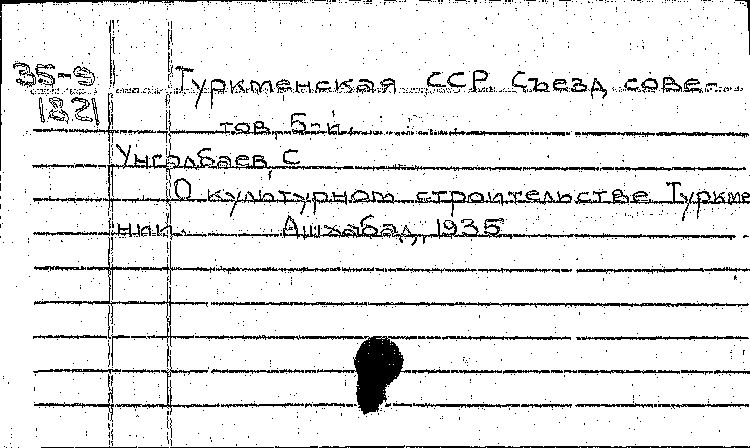 35-9 Туркменская ССР Съезд сове-
1821 тов, 5-й.
Унгалбаев, С
О культурном строительстве Туркме
нии. Ашхабад, 1935